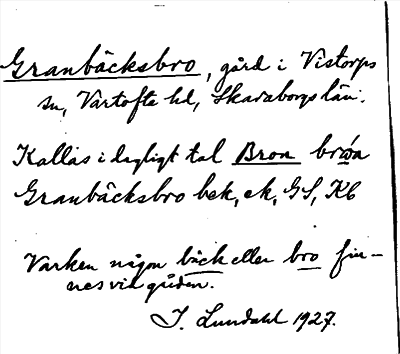 Granbäcksbro, gård i Vistorps
sn, Vartofta hd, Skaraborgs län.
Kallas i dagligt tal Bron
Granbäcksbro bek, ek, GS, Kb
Varken någon bäck eller bro fin-
nes vid gården.
I. Lundahl 1927.